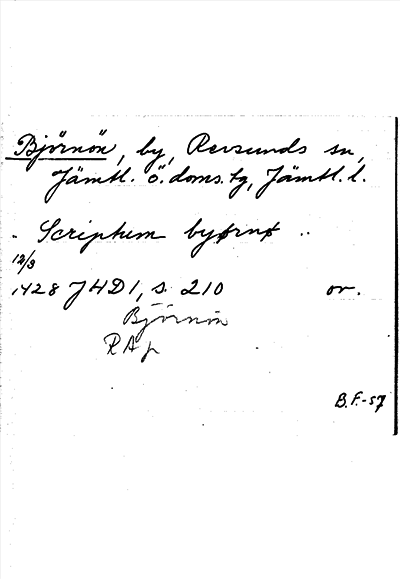 Björnön, by, Revsunds sn,
Jämtl. ö. doms. tg, Jämtl. l.
. Scriptum byørnø ..
12/3
1428 JHD1, s. 210 or.
Björnön
RAp
B.F.-57